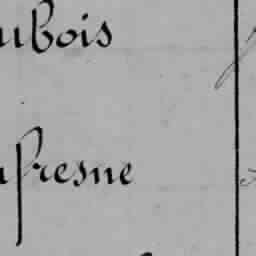 ubois
ufresne